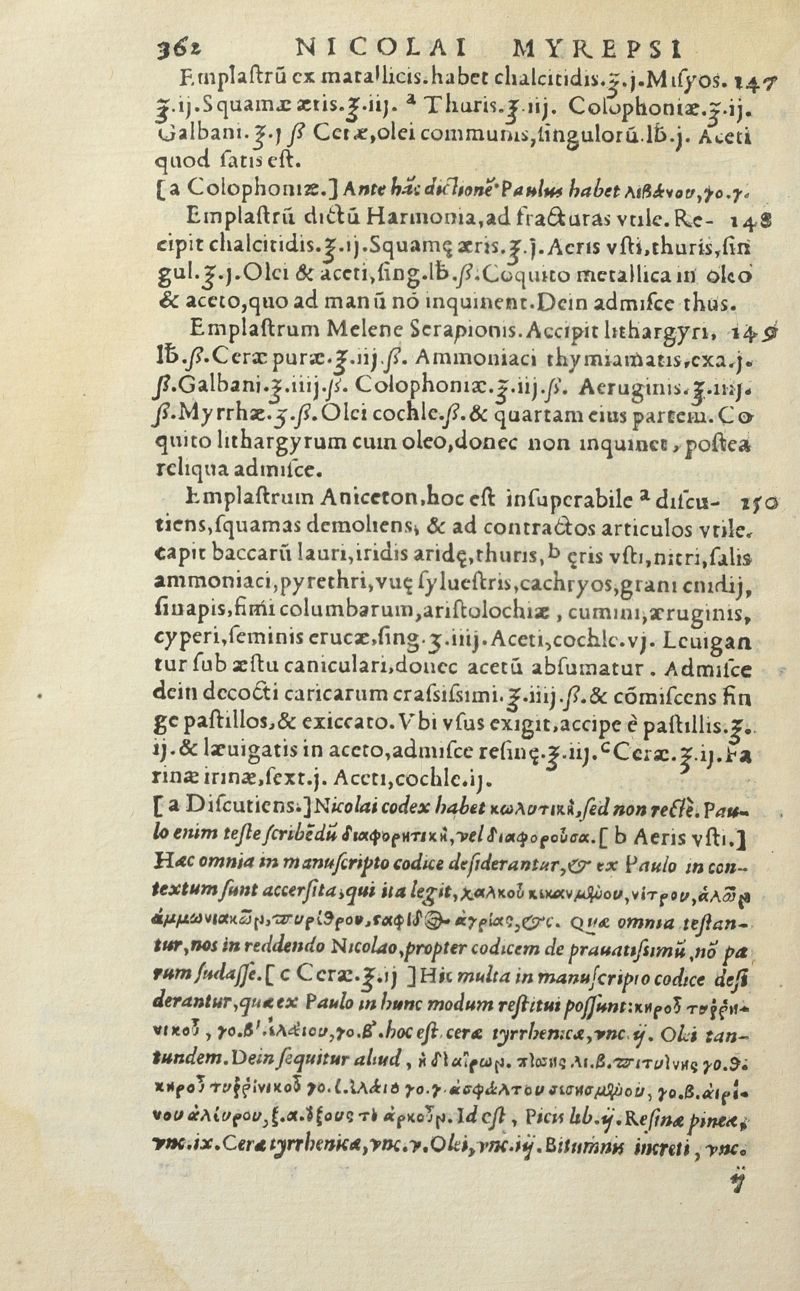 362 NICOLAI MYREPSI
Emplaſtrū ex matallicis.habet chalcitidis.ʒ.j.Miſyos. 147
ʒ.ij.Squamæ æris.ʒ.iij. ª Thuris.ʒ.iij. Colophoniæ.ʒ.ij.
Galbani.ʒ.j ß Ceræ,olei communis,ſingulorū.lb.j. Aceti
quod ſatis eſt.
[a Colophoniæ.] Ante hãc dictionẽ Paulus habet λιβάνου,γο.γ.
Emplaſtrū dictū Harmonia,ad fracturas vtile.Re- 148
cipit chalcitidis.ʒ.ij.Squamę æris.ʒ.j.Aeris vſti,thuris,ſin
gul.ʒ.j.Olei & aceti,ſing.lb.ß.Coquito metallica in oleo
& aceto,quo ad manū nō inquinent.Dein admiſce thus.
Emplaſtrum Melene Serapionis.Accipit lithargyri, 149
lb.ß.Ceræ puræ.ʒ.iij.ß. Ammoniaci thymiamatis,exa.j.
ß.Galbani.ʒ.iiij.ß. Colophoniæ.ʒ.iij.ß. Aeruginis.ʒ.iiij.
ß.Myrrhæ.ʒ.ß.Olei cochle.ß.& quartam eius partem.Co
quito lithargyrum cum oleo,donec non inquinet, poſtea
reliqua admiſce.
Emplaſtrum Aniceton,hoc eſt inſuperabile ª diſcu- 150
tiens,ſquamas demoliens, & ad contractos articulos vtile.
capit baccarū lauri,iridis aridę,thuris,ᵇ ęris vſti,nitri,ſalis
ammoniaci,pyrethri,vuę ſylueſtris,cachryos,grani cnidij,
ſinapis,fimi columbarum,ariſtolochiæ, cumini,æruginis,
cyperi,ſeminis erucæ,ſing.ʒ.iiij.Aceti,cochle.vj. Leuigan
tur ſub æſtu caniculari,donec acetū abſumatur. Admiſce
dein decocti caricarum craſsiſsimi.ʒ.iiij.ß.& cōmiſcens fin
ge paſtillos,& exiccato.Vbi vſus exigit,accipe è paſtillis.ʒ.
ij.& læuigatis in aceto,admiſce reſinę.ʒ.iij.ᶜCeræ.ʒ.ij.Fa
rinæ irinæ,ſext.j. Aceti,cochle.ij.
[a Diſcutiens.] Nicolai codex habet κωλυτικὰ,ſed non rectè.Pau-
lo enim teſte ſcribẽdū διαφορητικὰ,vel διαφοροῦσα.[ b Aeris vſti.]
Hæc omnia in manuſcripto codice deſiderantur,& ex Paulo in con-
textum ſunt accerſita,qui ita legit,χαλκοῦ κεκαυμένου,νίτρου,ἁλῶν
ἀμμωνιακῶν,πυρίθρου,σαφίδος ἀγρίας,&c. Quæ omnia teſtan-
tur,nos in reddendo Nicolao,propter codicem de prauatiſsimū,nō pa
rum ſudaſſe.[ c Ceræ.ʒ.ij ] Hic multa in manuſcripto codice deſi
derantur,quæ ex Paulo in hunc modum reſtitui poſſunt:κηροῦ τυῤῥη-
νικοῦ, γο.β'.ἐλαίου,γο.β'.hoc eſt,ceræ tyrrhenicæ,vnc.ij. Olei tan-
tundem.Dein ſequitur aliud, πίσσης λι.β.πιτυΐνης γο.θ.
κηροῦ τυῤῥινικοῦ γο.ἐλαίο γο.γ.ἀσφάλτου σεσησμένου, γο.β.ἀιρί-
νου ἀλεύρου,ξ.α.ὄξους τὸ ἀρκοῦν.Id eſt, Picis lib.ij.Reſinæ pineæ,
vnc.ix.Ceræ tyrrhenicæ,vnc.v.Olei,vnc.iij.Bituminis increti, vnc.
ij